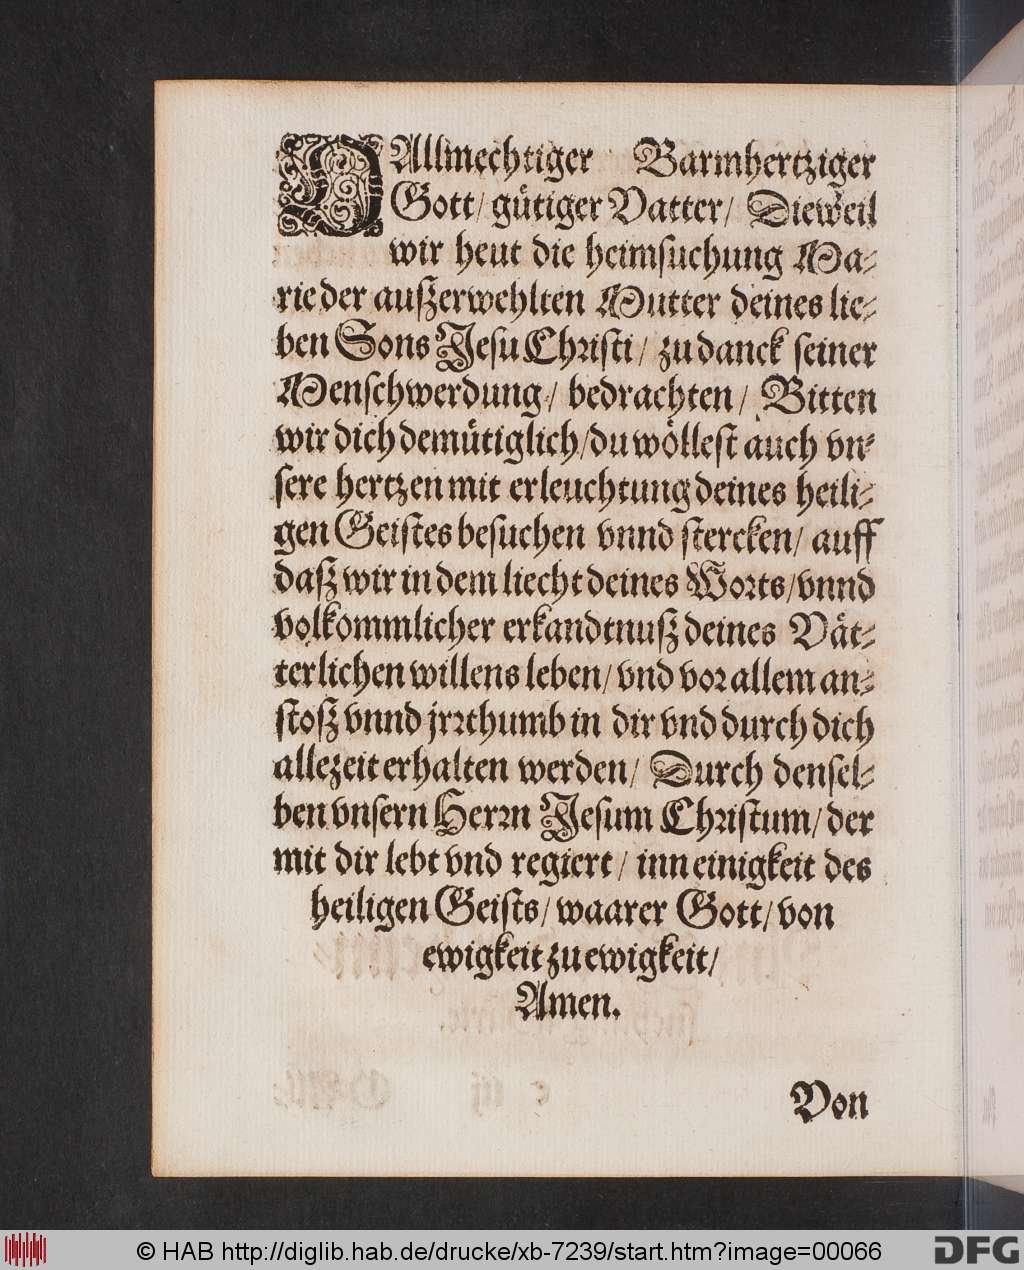 O Allmechtiger Barmhertziger
Gott/ gütiger Vatter/ Dieweil
wir heut die heimsuchung Ma-
rie der außerwehlten Mutter deines lie-
ben Sons Jesu Christi/ zu danck seiner
Menschwerdung/ bedrachten/ Bitten
wir dich demütiglich/ du wöllest auch vn-
sere hertzen mit erleuchtung deines heili-
gen Geistes besuchen vnnd stercken/ auff
daß wir in dem liecht deines Worts/ vnnd
volkommlicher erkandtnuß deines Vät-
terlichen willens leben/ vnd vor allem an-
stoß vnnd jrrthumb in dir vnd durch dich
allezeit erhalten werden/ Durch densel-
ben vnsern Herrn Jesum Christum/ der
mit dir lebt vnd regiert/ inn einigkeit des
heiligen Geists/ waarer Gott/ von
ewigkeit zu ewigkeit/
Amen.
Von
© HAB http://diglib.hab.de/drucke/xb-7239/start.htm?image=00066
DFG